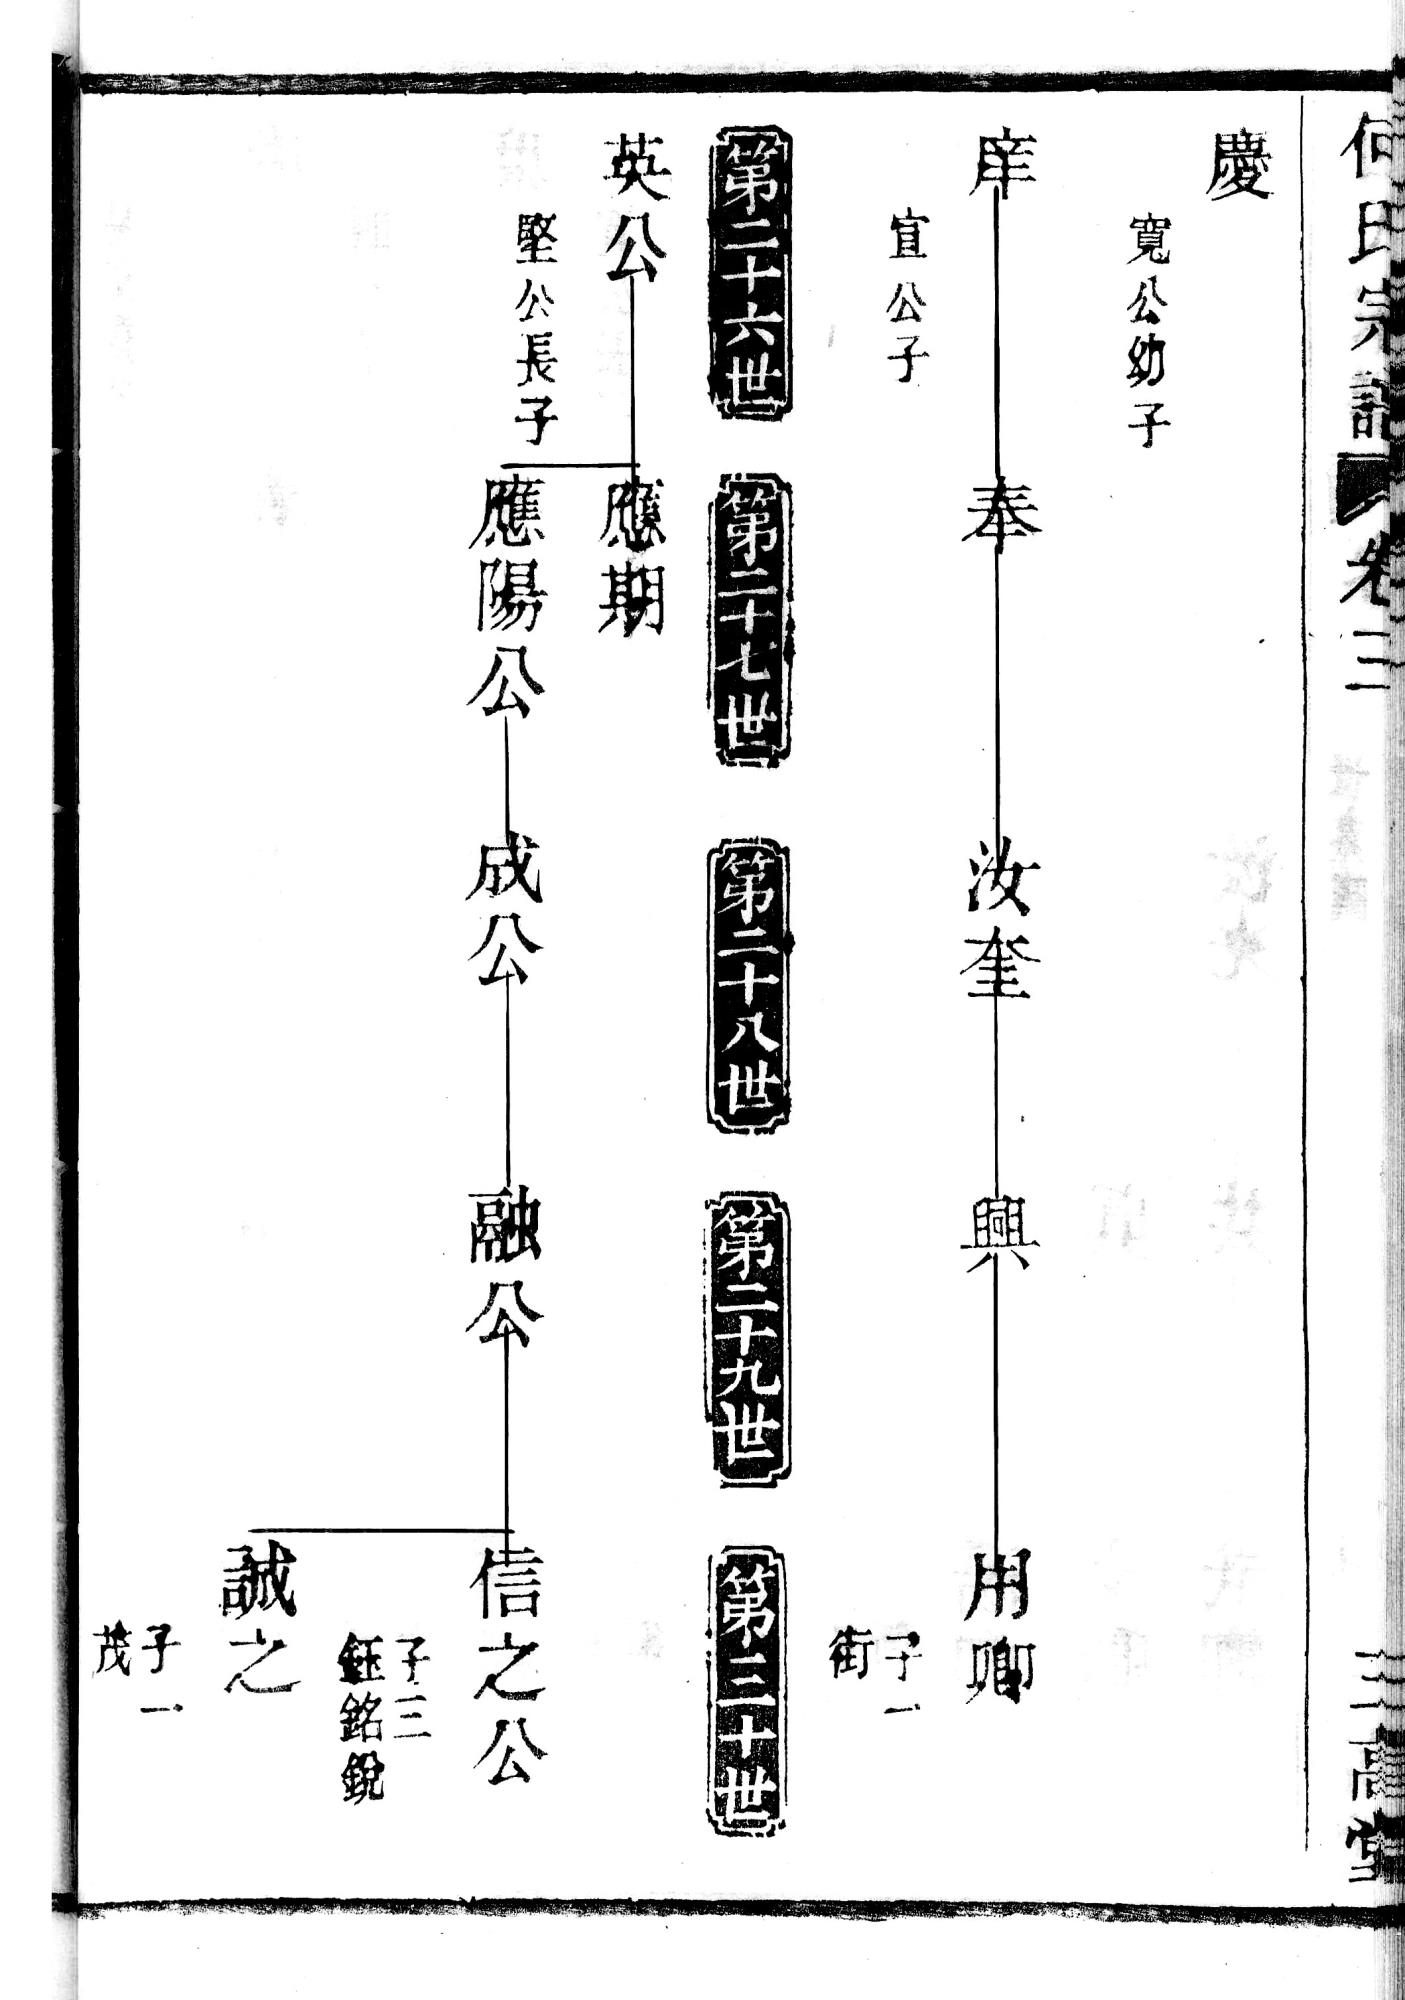 何氏宗譜
卷三
三高堂
慶
寬公幼子
庠
宜公子
奉
汝奎
興
用卿
子一
街
第二十六世
第二十七世
第二十八世
第二十九世
第三十世
英公
堅公長子
應期
應陽公
成公
融公
信之公
子三
鈺銘銳
誠之
子一
茂